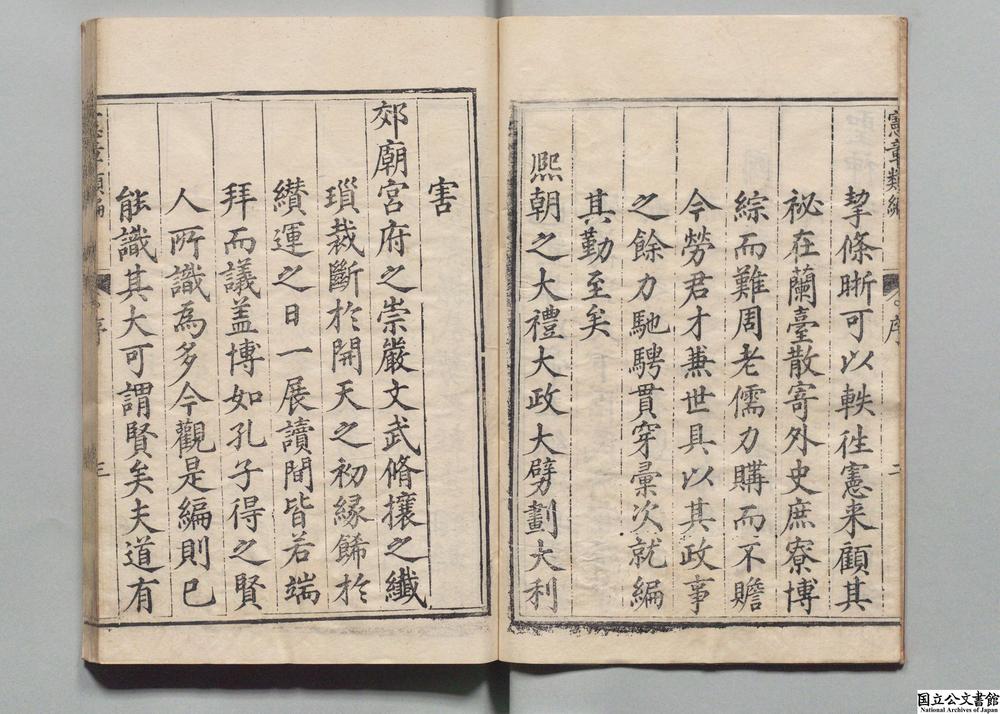 憲章類編
序
二
挈條晰可以軼往憲来顧其
祕在蘭臺散寄外史庶寮博
綜而難周老儒力購而不贍
今勞君才兼世具以其政事
之餘力馳騁貫穿彙次就編
其勤至矣
熈朝之大禮大政大劈劃大利
害
郊廟宮府之崇嚴文武脩攘之纖
瑣裁斷於開天之初縁餙於
纉運之日一展讀間皆若端
拜而議盖博如孔子得之賢
人所識為多今觀是編則已
能識其大可謂賢矣夫道有
序
三
国立公文書館
National Archives of Japan